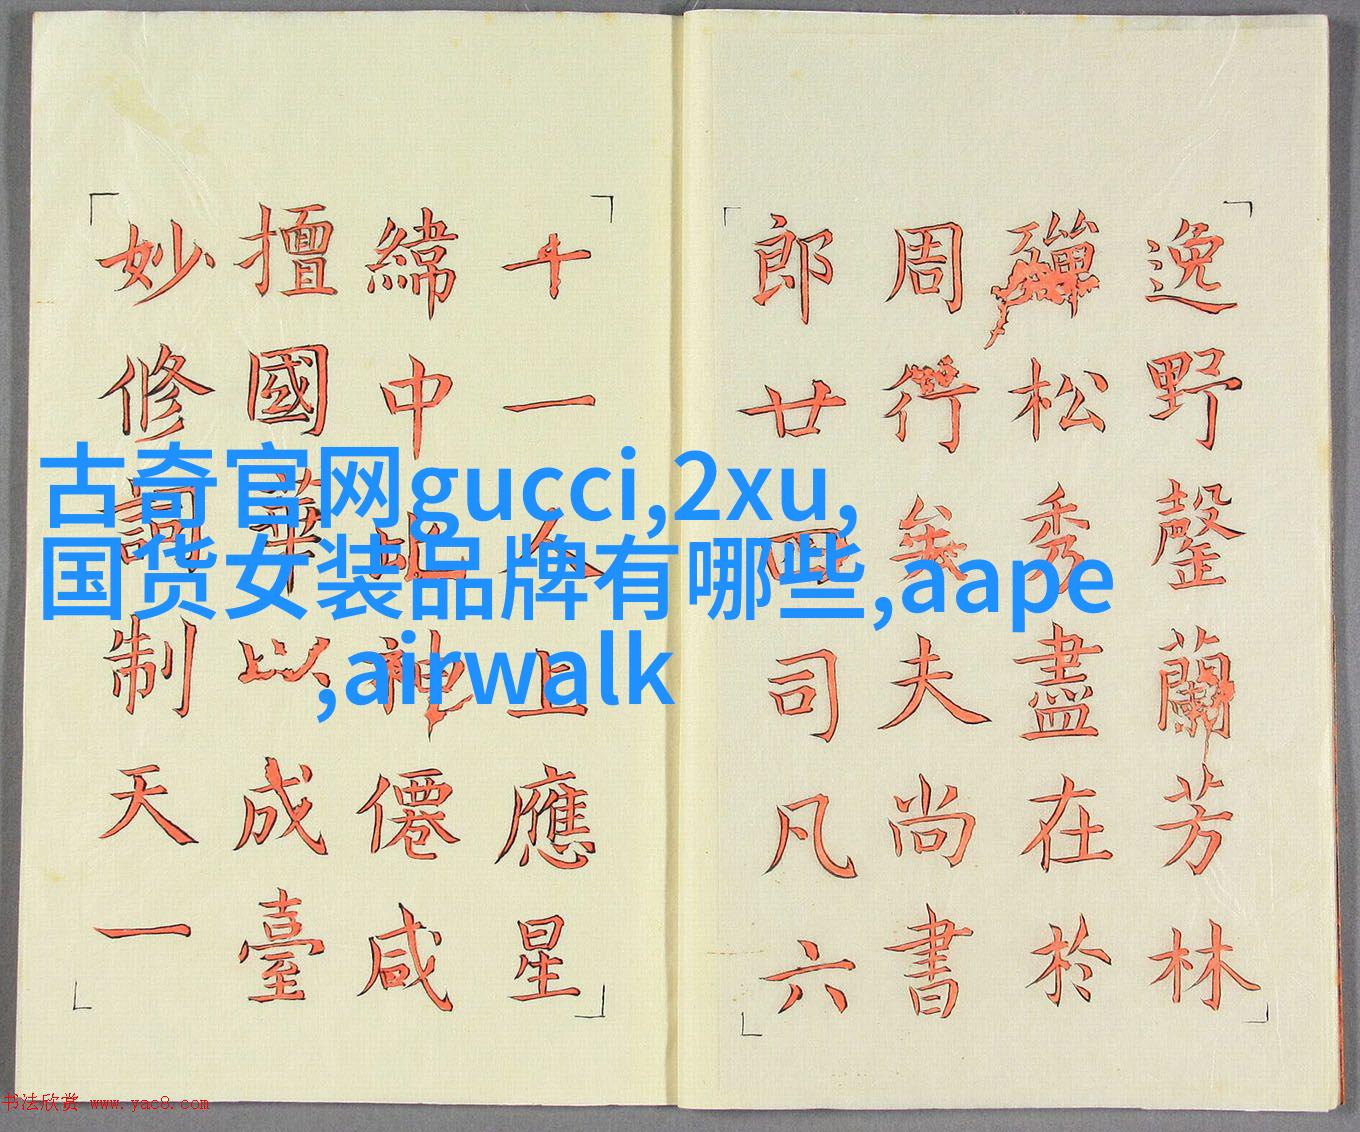 古奇官网gucci,2xu,
国货女装品牌有哪些,aape
,airwalk
逸野罄蘭芳林
殫松秀盡在於
周行矣夫尚書
郎廿四司凡六
十一人上應星
緯中比神僊咸
擅國華以成臺
妙修詞制天一
书法欣赏 www.yac8.com